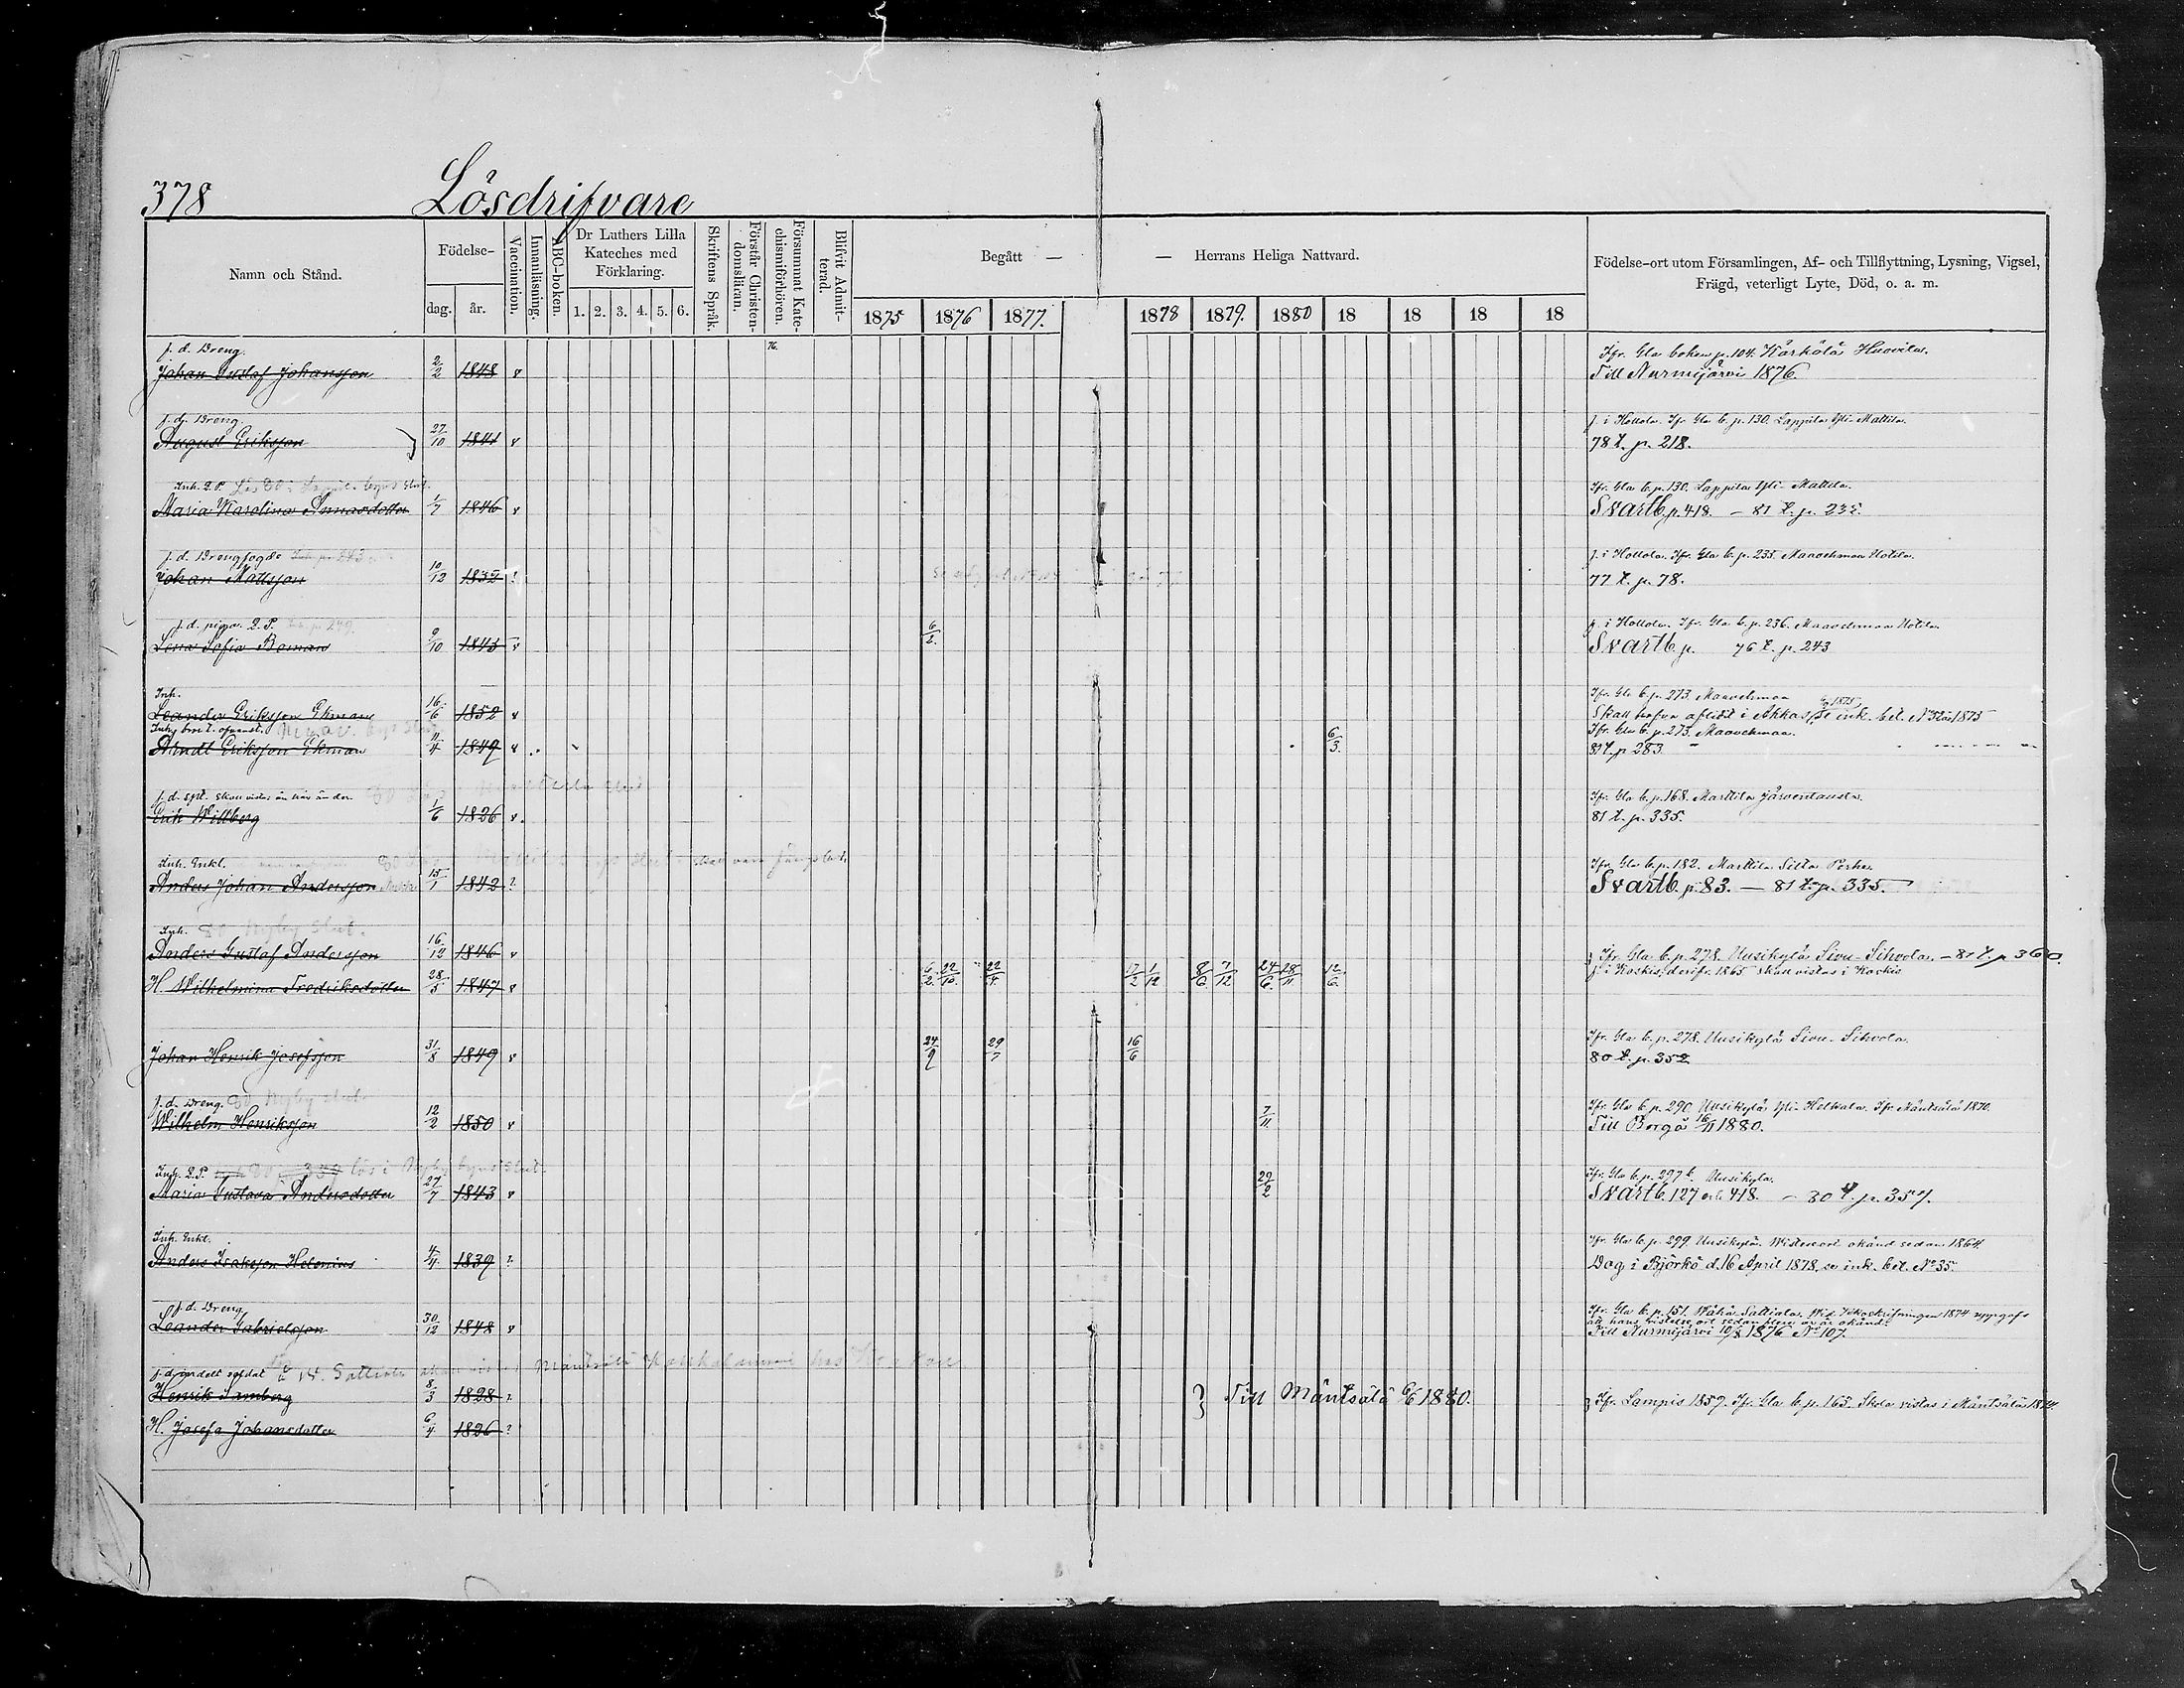 378 Lösdrifvare
Namn och Stånd.
Födelse-
dag. år.
Vaccination.
Innanläsning.
ABC-boken.
Dr Luthers Lilla Kateches med Förklaring.
1. 2. 3. 4. 5. 6.
Skriftens Språk.
Förstår Christendomsläran.
Försummat Katechismiförhören.
Blifvit Admitterad.
Begått — — Herrans Heliga Nattvard.
1875 1876 1877. 1878 1879. 1880 18 18 18 18
Födelse-ort utom Församlingen, Af- och Tillflyttning, Lysning, Vigsel,
Frägd, veterligt Lyte, Död, o. a. m.
f. d. Dreng. 76. Ifr. Gla boken p. 104. Kärkölä Huovila.
Johan Gustaf Johansson 2/2 1848 v Till Nurmijärvi 1876.
f. d. Dreng f. i Hollola. Ifr Gla b. p. 130. Lappila Yli-Mattila.
August Eriksson 27/10 1841 v 78 t. p. 218.
Inh. Q. P. Ifr. Gla b. p. 130. Lappila Yli-Mattila.
Maria Karolina Annasdotter 1/7 1846 v Svartb. p. 418. — 81 t. p. 235.
f. d. Drengfogde f. i Hollola. Ifr. Gla b. p. 235. Maavehmaa Uotila.
Johan Mattsson 10/12 1832 ? 77 t. p. 78.
f. d. piga. Q. P. 6/2. f. i Hollola. Ifr. Gla b. p. 236. Maavehmaa Uotila.
Lena Sofia Boman 9/10 1843 v Svartb. p. 76 t. p. 243
Inh. Ifr. Gla b. p. 273. Maavehmaa
Leander Eriksson Ekman 16/6 1852 v Skall hafva aflidit i Akkas se ink. bet. 1875
Ifr. Gla b. p. 273. Maavehmaa.
Arndt Eriksson Ekman 11/4 1849 v 6/3. 81 t. p. 283.
f. d. Ifr. Gla b. p. 168. Marttila Järventausta.
Erik Willberg 1/6 1826 v. 81 t. p. 335.
Inh. Enkl. Ifr. Gla b. p. 182. Marttila Silta Perho.
Anders Johan Andersson 15/1 1842 ? Svartb. p. 83. — 81 t. p. 335.
Inh.
Anders Gustaf Andersson 16/12 1846 v Ifr. Gla b. p. 278. Uusikylä Sivu-Sihvola. — 81 t. p. 360.
H. Wilhelmina Fredriksdotter 28/5 1847 v 6/2. 22/10. 22/4. 17/2 1/12 8/6 7/12 24/6. 28/11 12/6. f. i Koskis, derifr. 1865 skall vistas i Koskis
Ifr. Gla b. p. 278. Uusikylä Sivu-Sihvola.
Johan Henrik Josefsson 31/8 1849 v 24/9 29/7 16/6 80 t. p. 352
f. d. Dreng. Ifr. Gla b. p. 290. Uusikylä Yli-Heikkala. Ifr. Mäntsälä 1870.
Wilhelm Henriksson 12/2 1850 v 7/11. Till Borgå 16/11 1880.
Inh. Q. P. Ifr. Gla b. p. 297 b. Uusikylä.
Maria Gustava Andersdotter 27/7 1843 v 29/2 Svartb. 127 och 418. — 80 t. p. 357.
Inh. Enkl. Ifr. Gla b. p. 299. Uusikylä. Vistelseort okänd sedan 1864.
Anders Isaksson Helenius 4/4 1839 ? Dog i Björkö d. 16 April 1878, se ink. bet. No 35.
f. d. Dreng Ifr. Gla b. p. 151. Wähä-Sattiala. Vid skattskrifningen 1874 uppgafs
att hans vistelse ort sedan flere år är okänd.
Leander Gabrielsson 30/12 1848 v Till Nurmijärvi 10/8 1876 No 107.
f. d. indelt soldat
Henrik Lamberg 8/3 1828 ? Till Mäntsälä 6/6 1880. Ifr. Lampis 1857. Ifr. Gla b. p. 163. Skola vistas i Mäntsälä 1874.
H. Josefa Johansdotter 6/4 1826 ?